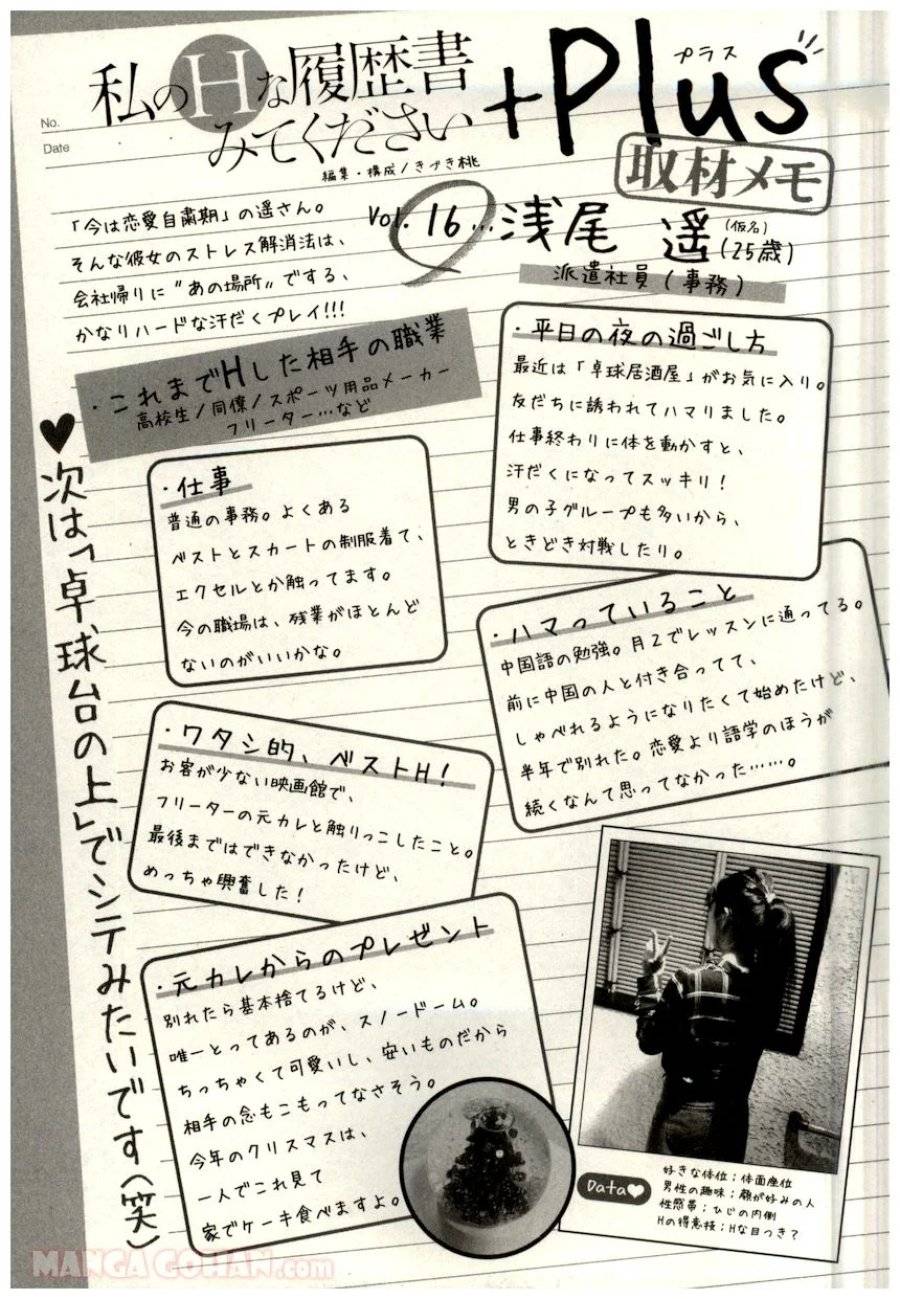 No.
Date
私のHな履歴書
みてください
+Plus
プラス
編集・構成/きづき桃
取材メモ
「今は恋愛自粛期」の遥さん。
そんな彼女のストレス解消法は、
会社帰りに"あの場所"でする、
かなりハードな汗だくプレイ!!!
Vol. 16…浅尾 遥(仮名)(25歳)
派遣社員(事務)
・これまでHした相手の職業
高校生/同僚/スポーツ用品メーカー
フリーター…など
・平日の夜の過ごし方
最近は「卓球居酒屋」がお気に入り。
友だちに誘われてハマりました。
仕事終わりに体を動かすと、
汗だくになってスッキリ!
男の子グループも多いから、
ときどき対戦したり。
・仕事
普通の事務。よくある
ベストとスカートの制服着て、
エクセルとか触ってます。
今の職場は、残業がほとんど
ないのがいいかな。
・ハマっていること
中国語の勉強。月2でレッスンに通ってる。
前に中国の人と付き合ってて、
しゃべれるようになりたくて始めたけど、
半年で別れた。恋愛より語学のほうが
続くなんて思ってなかった……。
・ワタシ的、ベストH!
お客が少ない映画館で、
フリーターの元カレと触りっこしたこと。
最後まではできなかったけど、
めっちゃ興奮した!
・元カレからのプレゼント
別れたら基本捨てるけど、
唯一とってあるのが、スノードーム。
ちっちゃくて可愛いし、安いものだから
相手の念もこもってなさそう。
今年のクリスマスは、
一人でこれ見て
家でケーキ食べますよ。
♥次は「卓球台の上」でシテみたいです(笑)
Data♥
好きな体位;体面座位
男性の趣味;顔が好みの人
性感帯;ひじの内側
Hの得意技;Hな目つき?
MANGA GOHAN.com